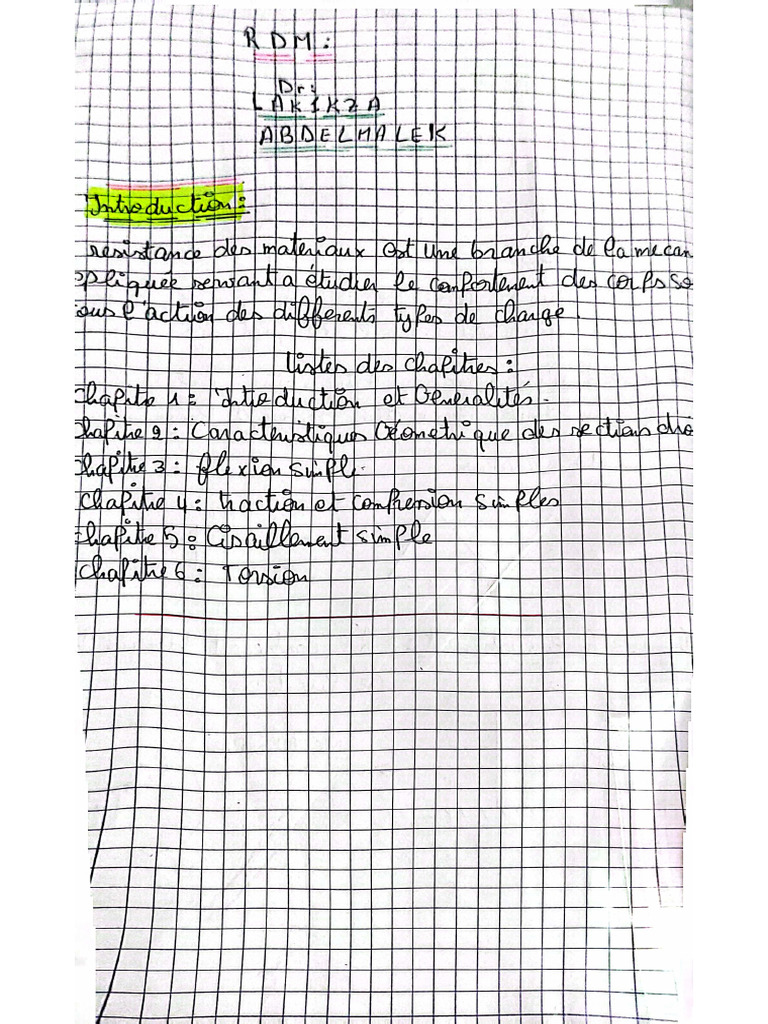 RDM:
Dr:
LAKIKZA
ABDELMALEK
Introduction:
resistance des materiaux est une branche de la mecan
ppliquée servant a étudier le comportement des corps so
ous l'action des differents types de charge.
listes des chapitres:
chapitre 1: Introduction et Generalités.
chapitre 2: Caracteristiques Géometrique des sections droi
chapitre 3: flexion simple.
chapitre 4: traction et compression simples
chapitre 5: Cisaillement simple
chapitre 6: Torsion